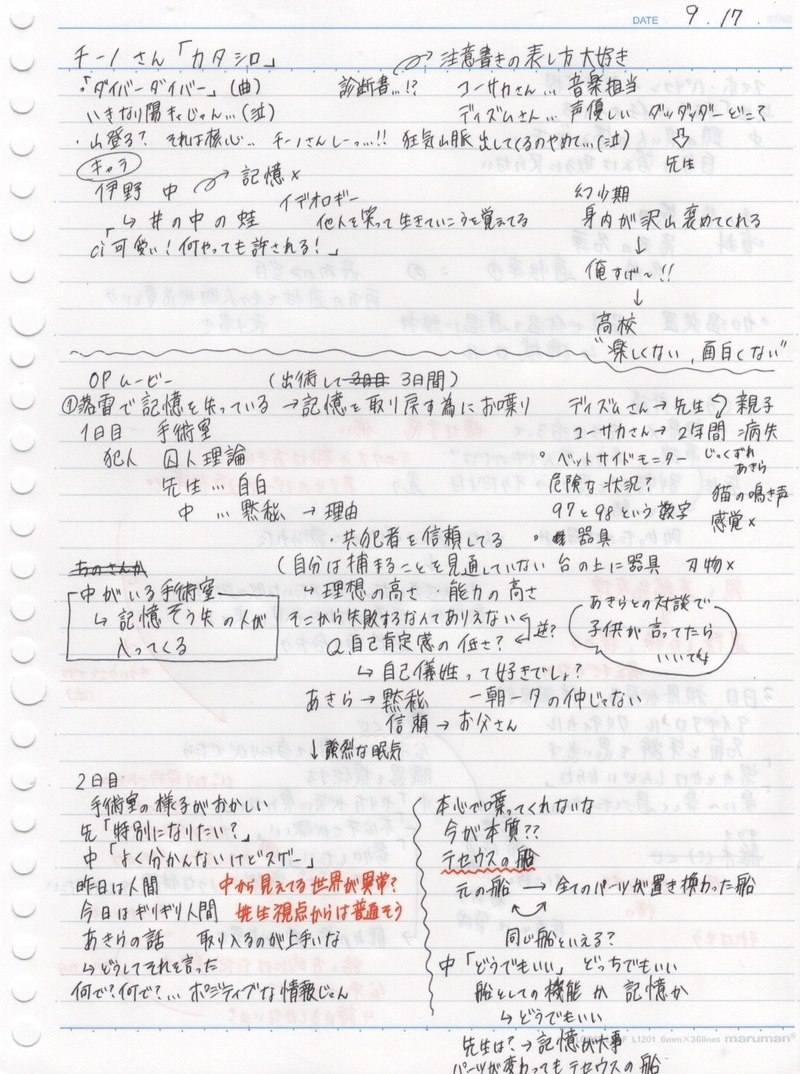 DATE 9.17
チーノさん「カタシロ」 注意書きの表し方大好き
・「ダイバーダイバー」(曲) 診断書...!? コーサカさん... 音楽担当
いきなり陽キャじゃん...(泣) ディズムさん... 声優しい ダッダッダーどこ?
・山登る? それは核心.. チーノさんしーっ...!! 狂気山脈出してくるのやめて...(泣) ⇩
先生
キャラ
伊野 中 記憶×
↳ 井の中の蛙 イデオロギー 他人を笑って生きていこうを覚えてる
「ci 可愛い!何やっても許される!」
幼少期
身内が沢山褒めてくれる
↓
俺すげ〜!!
↓
高校
"楽しくない,面白くない"
OPムービー (出術して3日目 3日間)
①落雷で記憶を失っている →記憶を取り戻す為にお喋り ディズムさん→先生 親子
1日目 手術室 コーサカさん→2年間 病失
犯人 囚人理論 ° ベットサイドモニター
先生... 自白 危険な状況? 猫の鳴き声
中 ... 黙秘 → 理由 97と98という数字 感覚×
・共犯者を信頼してる ° 器具
(自分は捕まることを見通していない 台の上に器具 刃物×
中がいる手術室 → 理想の高さ・能力の高さ
↳ 記憶そう失の人が そこから失敗するなんてありえない
入ってくる Q.自己肯定感の低さ? 逆?
↳ 自己犠牲って好きでしょ?
あきらとの対談で
子供が言ってたら
いいてよ
あきら→ 黙秘 一朝一夕の仲じゃない
信頼→お父さん
↓強烈な眠気
2日目
手術室の様子がおかしい
先「特別になりたい?」
中「よく分かんないけどスゲー」
昨日は人間 中から見えてる世界が異常?
今日はギリギリ人間 先生視点からは普通そう
あきらの話 取り入るのが上手いな
↳どうしてそれを言った
何で?何で?... ポジティブな情報じゃん
本心で喋ってくれないな
今が本質??
テセウスの船
元の船 → 全てのパーツが置き換わった船
同じ船といえる?
中「どうでもいい」 どっちでもいい
船としての機能か 記憶か
↳ どうでもいい
先生は?→記憶が大事
パーツが変わってもテセウスの船
L1201 6mm×36lines maruman